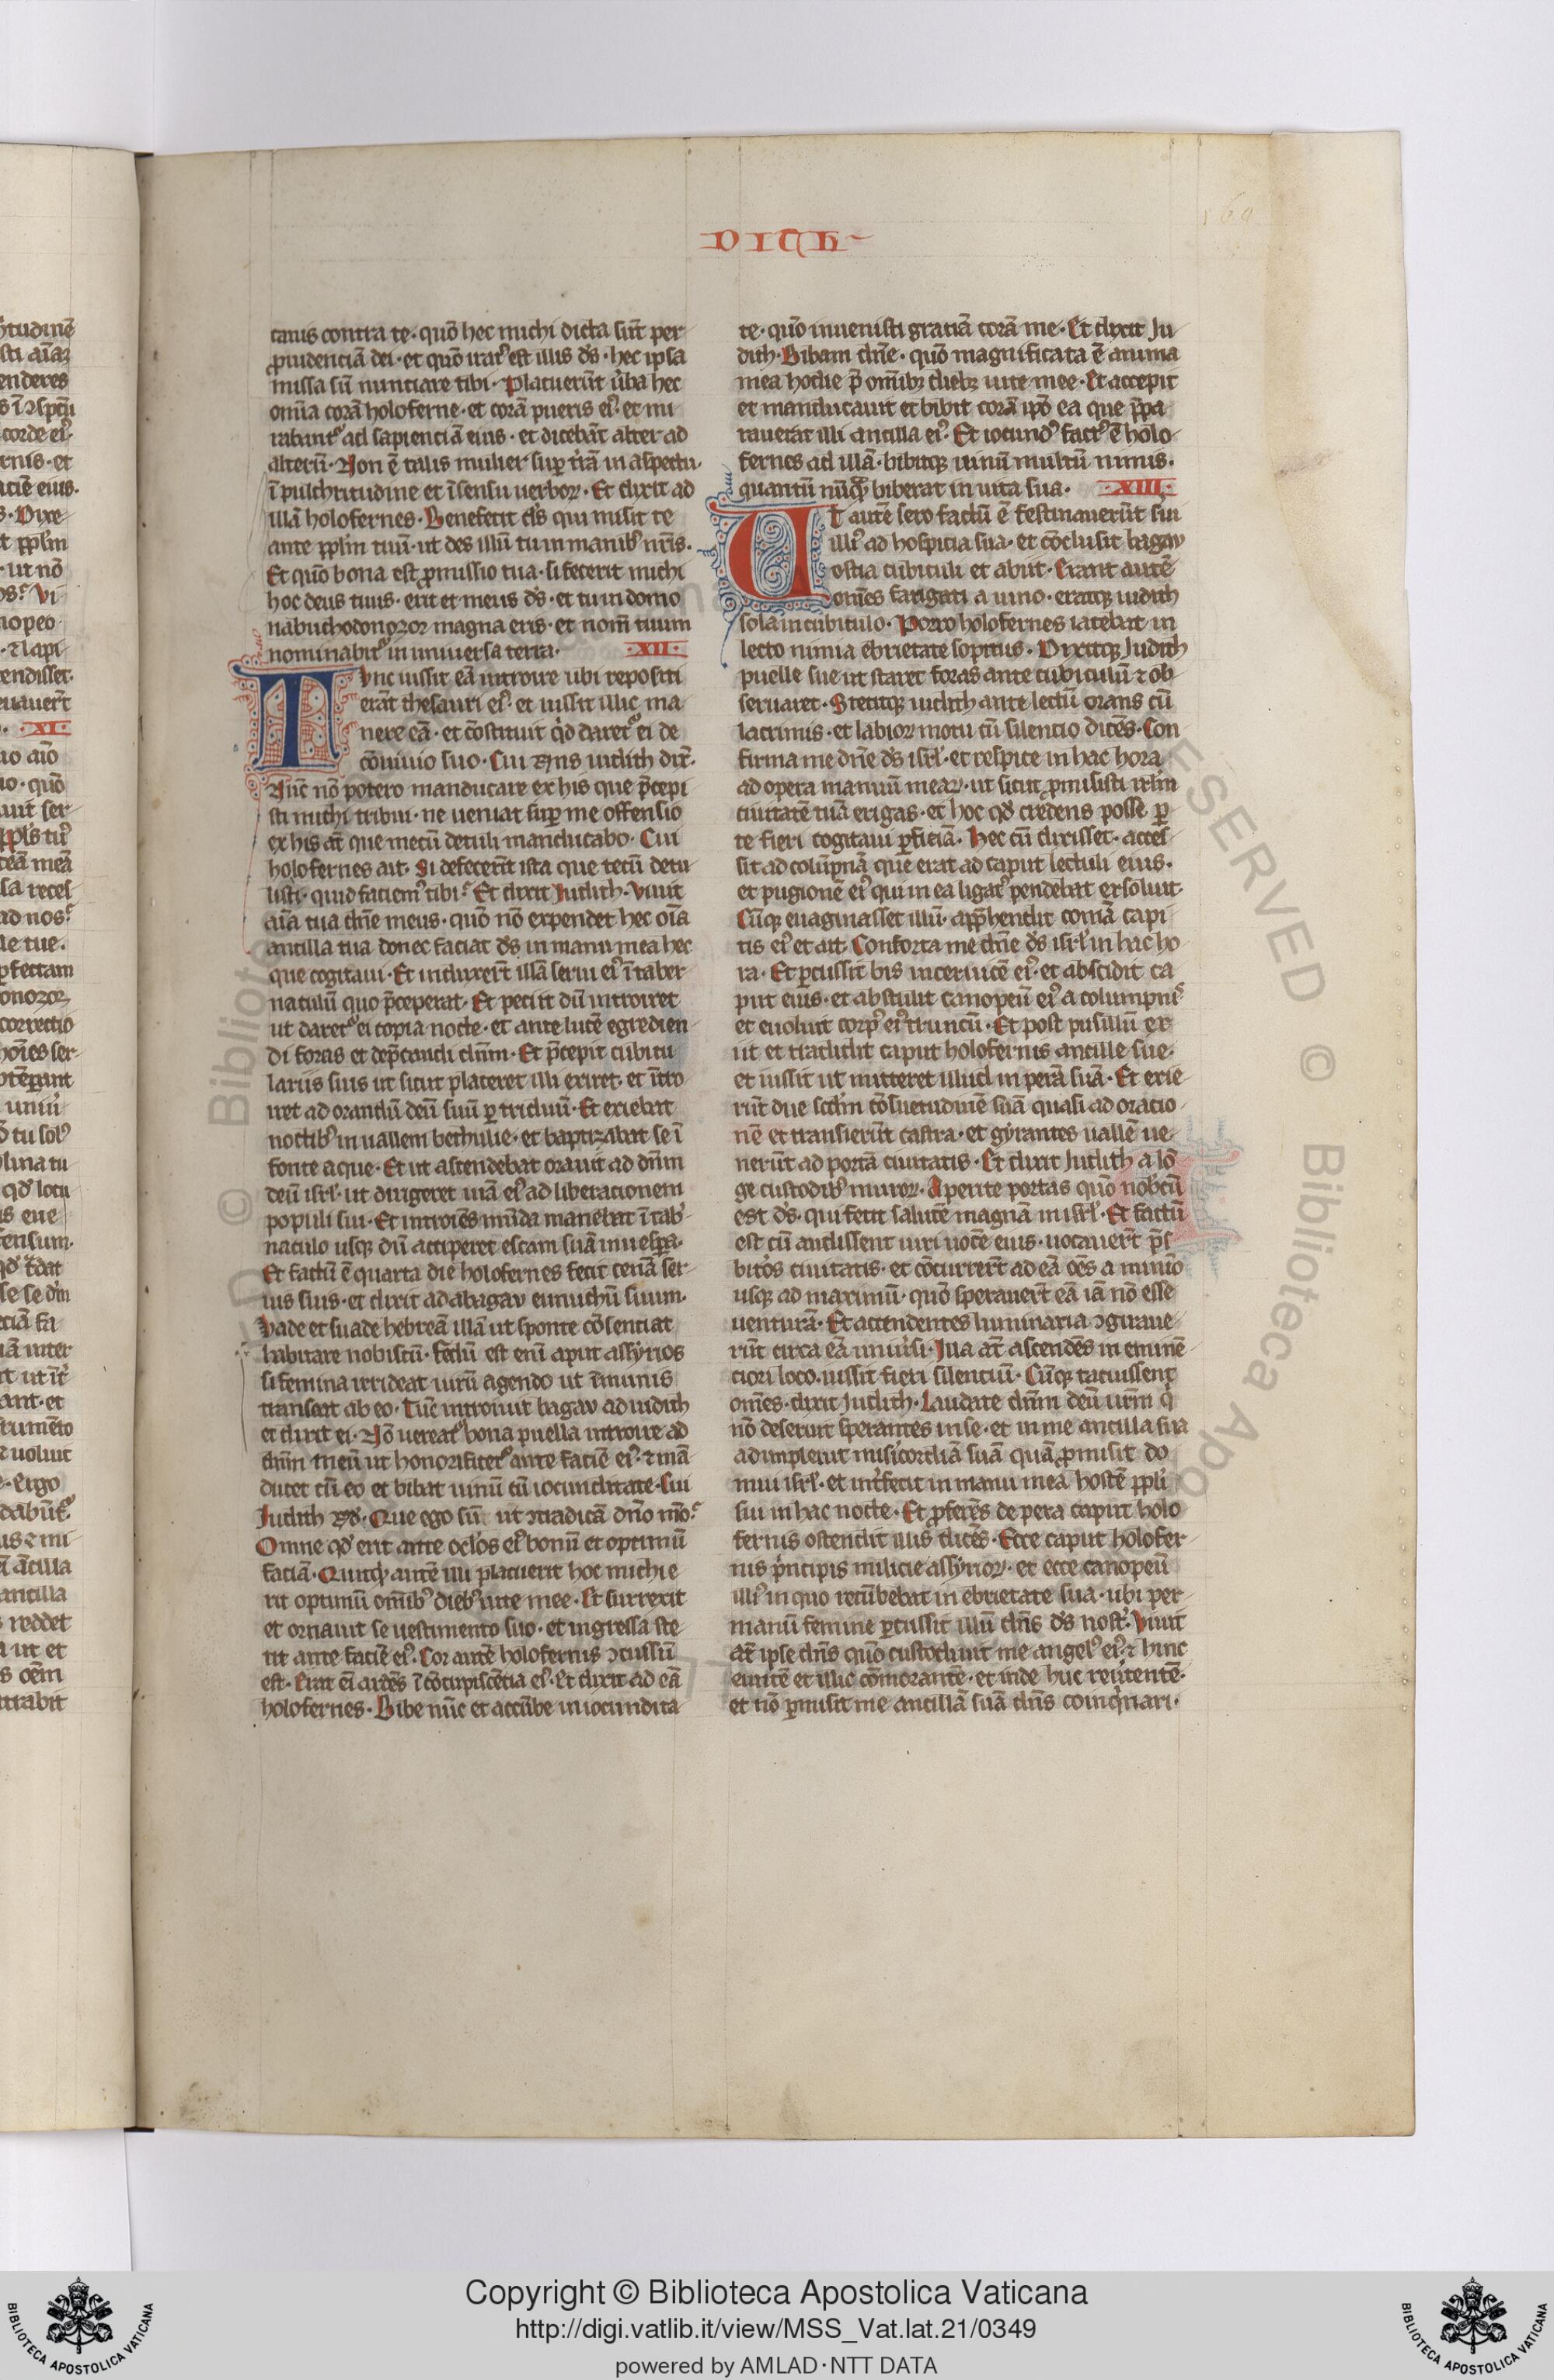 DITH
catus contra te. quō hec michi dicta sūt per
ꝓuidenciā dei. et quō iratꝰ est illis dꝰs. hec ipsa
missa sū nunciare tibi. Placuerūt ūba hec
omīa corā holoferne. et corā pueris eiꝰ. et mi
rabantꝰ ad sapienciā eius. et dicebāt alter ad
alterū. Non ē talis mulier suꝑ t̄rā in aspectu.
ī pulchritudine et ī sensu uerboꝝ. Et dixit ad
illā holofernes. Benefecit dꝰs qui misit te
ante ꝓplm̄ tuū. ut des illū tu in manibꝰ nr̄is.
Et quō bona est ꝓmissio tua. si fecerit michi
hoc deus tuus. erit et meus dꝰs. et tu in domo
nabuchodonozor magna eris. et nom̄ tuum
nominabitꝰ in uniuersa terra. .XII.
Tvnc iussit eā introire ubi repositi
erāt thesauri eiꝰ. et iussit illic ma
nere eā. et cōstituit qͥd daretꝰ ei de
cōuiuio suo. Cui R̄ns iudith dix̄.
Nūc nō potero manducare ex his que p̄cepi
sti michi tribui. ne ueniat suꝑ me offensio
ex his aū que mecū detuli manducabo. Cui
holofernes ait. Si defecerīt ista que tecū detu
listi. quid faciemꝰ tibi? Et dixit Judith. Viuit
aīa tua dn̄e meus. quō nō expendet hec oīa
ancilla tua donec faciat dꝰs in manu mea hec
que cogitaui. Et induxer̄t illā serui eiꝰ ī taber
naculū quo p̄ceperat. Et peciit dū introiret
ut daretꝰ ei copia nocte. et ante lucē egredien
di foras et dep̄candi dn̄m. Et p̄cepit cubicu
lariis suis ut sicut placeret illi exiret. et ītro
iret ad orandū deū suū ꝑ triduū. Et exiebat
noctibꝰ in uallem bethulie. et baptizabat se ī
fonte aque. Et ut ascendebat orauit ad dn̄m
deū isrl̄. ut dirigeret uiā eiꝰ ad liberacionem
populi sui. Et introiēs mūda manebat ī tab̄
naculo usqꝫ dū acciperet escam suā in uesꝑa.
Et factū ē quarta die holofernes fecit cenā ser
uis suis. et dixit ad abagav eunuchū suum.
Vade et suade hebreā illā ut sponte cōsentiat
habitare nobiscū. fedū est enī aput assyrios
si femina irrideat uirū agendo ut īmunis
transeat ab eo. Tūc introiuit bagav ad iudith
et dixit ei. Nō uereatꝰ bona puella introire ad
dn̄m meū ut honorificetꝰ ante faciē eiꝰ. ⁊ mā
ducet cū eo et bibat uinū cū iocunditate. Cui
Judith R̄d̄. Que ego sū ut ↄtradicā dn̄o mō?
Omne qd̄ erit ante oclōs eiꝰ bonū et optimū
faciā. Quicqͥd autē illi placuerit hoc michi e
rit optimū om̄ibꝰ diebꝰ uite mee. Et surrexit
et ornauit se uestimento suo. et ingressa ste
tit ante faciē eiꝰ. Cor autē holofernis ↄcussū
est. Erat eī ardēs ī cōcupiscētia eiꝰ. Et dixit ad eā
holofernes. Bibe nūc et accūbe in iocundita
te. quō inuenisti gratiā corā me. Et dixit Ju
dith. Bibam dn̄e. quō magnificata ē anima
mea hodie p̄ omībꝫ diebꝫ uite mee. Et accepit
et manducauit et bibit corā ip̄o ea que p̄pa
rauerat illi ancilla eiꝰ. Et iocundꝰ factꝰ ē holo
fernes ad illā. bibitqꝫ uinū multū nimis.
quantū nūqͣ biberat in uita sua. .XIII.
Ut autē sero factū ē festinauerūt sui
illiꝰ ad hospicia sua. et cōclusit bagav
ostia cubiculi et abiit. Erant autē
omēs fatigati a uino. eratqꝫ iudith
sola in cubiculo. Porro holofernes iacebat in
lecto nimia ebrietate sopitus. Dixitqꝫ Judith
puelle sue ut staret foras ante cubiculū ⁊ ob
seruaret. Stetitqꝫ iudith ante lectū orans cū
lacrimis. et labioꝝ motu cū silencio dicēs. Con
firma me dn̄e dꝰs isrl̄. et respice in hac hora
ad opera manuū meaꝝ. ut sicut ꝓmisisti irl̄m
ciuitatē tuā erigas. et hoc qd̄ credens posse ꝑ
te fieri cogitaui ꝑficiā. Hec cū dixisset. acces
sit ad colūpnā que erat ad caput lectuli eius.
et pugionē eiꝰ qui in ea ligatꝰ pendebat exsoluit.
Cūqꝫ euaginasset illū. app̄hendit comā capi
tis eiꝰ et ait. Conforta me dn̄e dꝰs isrl̄ in hac ho
ra. Et ꝑcussit bis in ceruicē eiꝰ. et abscidit ca
put eius. et abstulit canopeū eiꝰ a columpnis
et euoluit corpꝰ eiꝰ truncū. Et post pusillū ex
iit et tradidit caput holofernis ancille sue.
et iussit ut mitteret illud in perā suā. Et exie
rūt due scd̄m cōsuetudinē suā quasi ad oracio
nē et transierūt castra. et gyrantes uallē ue
nerūt ad portā ciuitatis. Et dixit Judith a lō
ge custodibꝰ muroꝝ. Aperite portas quō nob̄cū
est dꝰs. qui fecit salutē magnā in isrl̄. Et factū
est cū audissent uiri uocē eius. uocauer̄t p̄s
bitōs ciuitatis. et cōcurrer̄t ad eā oēs a minīo
usqꝫ ad maximū. quō sperauer̄t eā iā nō esse
uenturā. Et accendentes luminaria ↄgiraue
rūt circa eā uniūsi. Illa aū ascendēs in eminē
ciori loco. iussit fieri silenciū. Cūqꝫ tacuissent
omēs. dixit Judith. Laudate dn̄m deū nr̄m qͥ
nō deseruit sperantes in se. et in me ancilla sua
adimpleuit misicordiā suā quā ꝓmisit do
mui isrl̄. et int̄fecit in manu mea hostē ꝓpli
sui in hac nocte. Et ꝓferēs de pera caput holo
fernis ostendit illis dicēs. Ecce caput holofer
nis p̄ncipis milicie assyrioꝝ. et ecce canopeū
illiꝰ in quo recūbebat in ebrietate sua. ubi per
manū femine ꝑcussit illū dn̄s dꝰs nost̄. Viuit
aū ipse dn̄s quō custodiuit me angelꝰ eiꝰ. ⁊ hinc
euntē et illic cōmorantē. et inde huc reūtentē.
et nō ꝑmisit me ancillā suā dn̄s coinqͥnari.
Copyright © Biblioteca Apostolica Vaticana
http://digi.vatlib.it/view/MSS_Vat.lat.21/0349
powered by AMLAD·NTT DATA
BIBLIOTECA APOSTOLICA VATICANA
BIBLIOTECA APOSTOLICA VATICANA